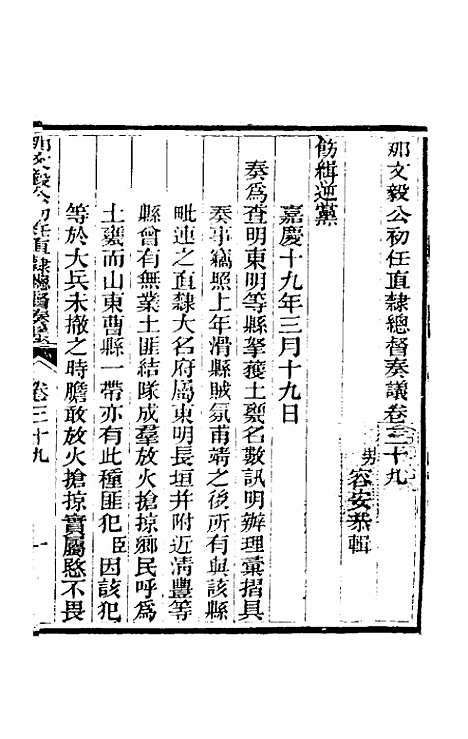 那文毅公初任直隸總督奏議卷三十九
男容安恭輯
飭緝逆黨
嘉慶十九年三月十九日
奏為查明東明等縣拏獲土獘名數訊明辦理彙摺具
奏事竊照上年滑縣賊氛甫靖之後所有與該縣
毗連之直隸大名府屬東明長垣并附近清豐等
縣會有無業土匪結隊成羣放火搶掠鄉民呼為
土獘而山東曹縣一帶亦有此種匪犯臣因該犯
等於大兵未撤之時膽敢放火搶掠實屬愍不畏
那文毅公初任直隸總督奏議 卷三十九 一